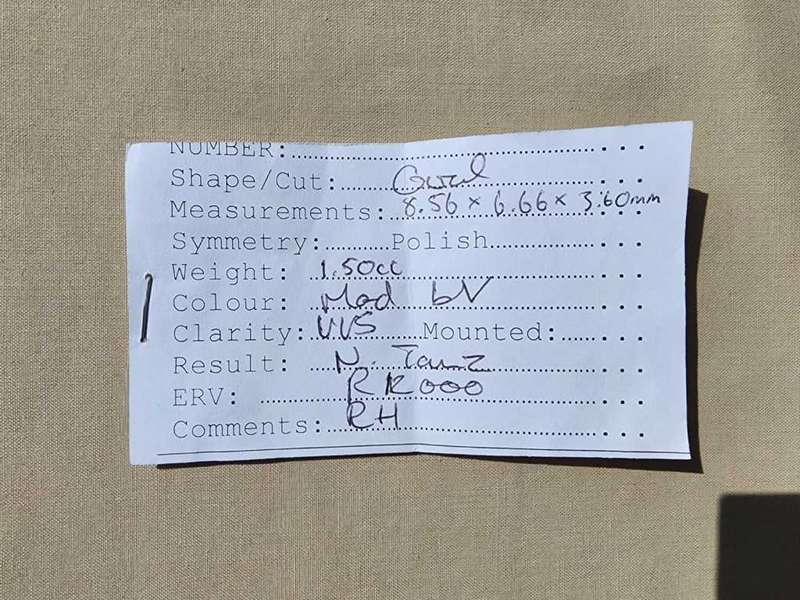 NUMBER:
Shape/Cut: Oval
Measurements: 8.56 x 6.66 x 3.60mm
Symmetry: Polish
Weight: 1.50ct
Colour: Mod bV
Clarity: VVS Mounted:
Result: N. Tanz
ERV:
Comments: RH